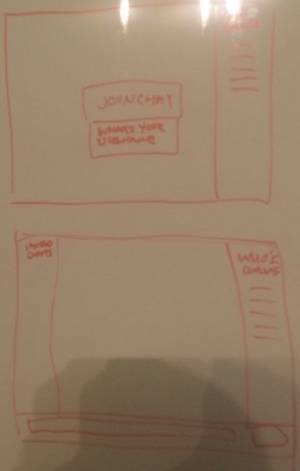 JOIN CHAT
WHAT'S YOUR
USERNAME
CHATS
WHO'S
ONLINE